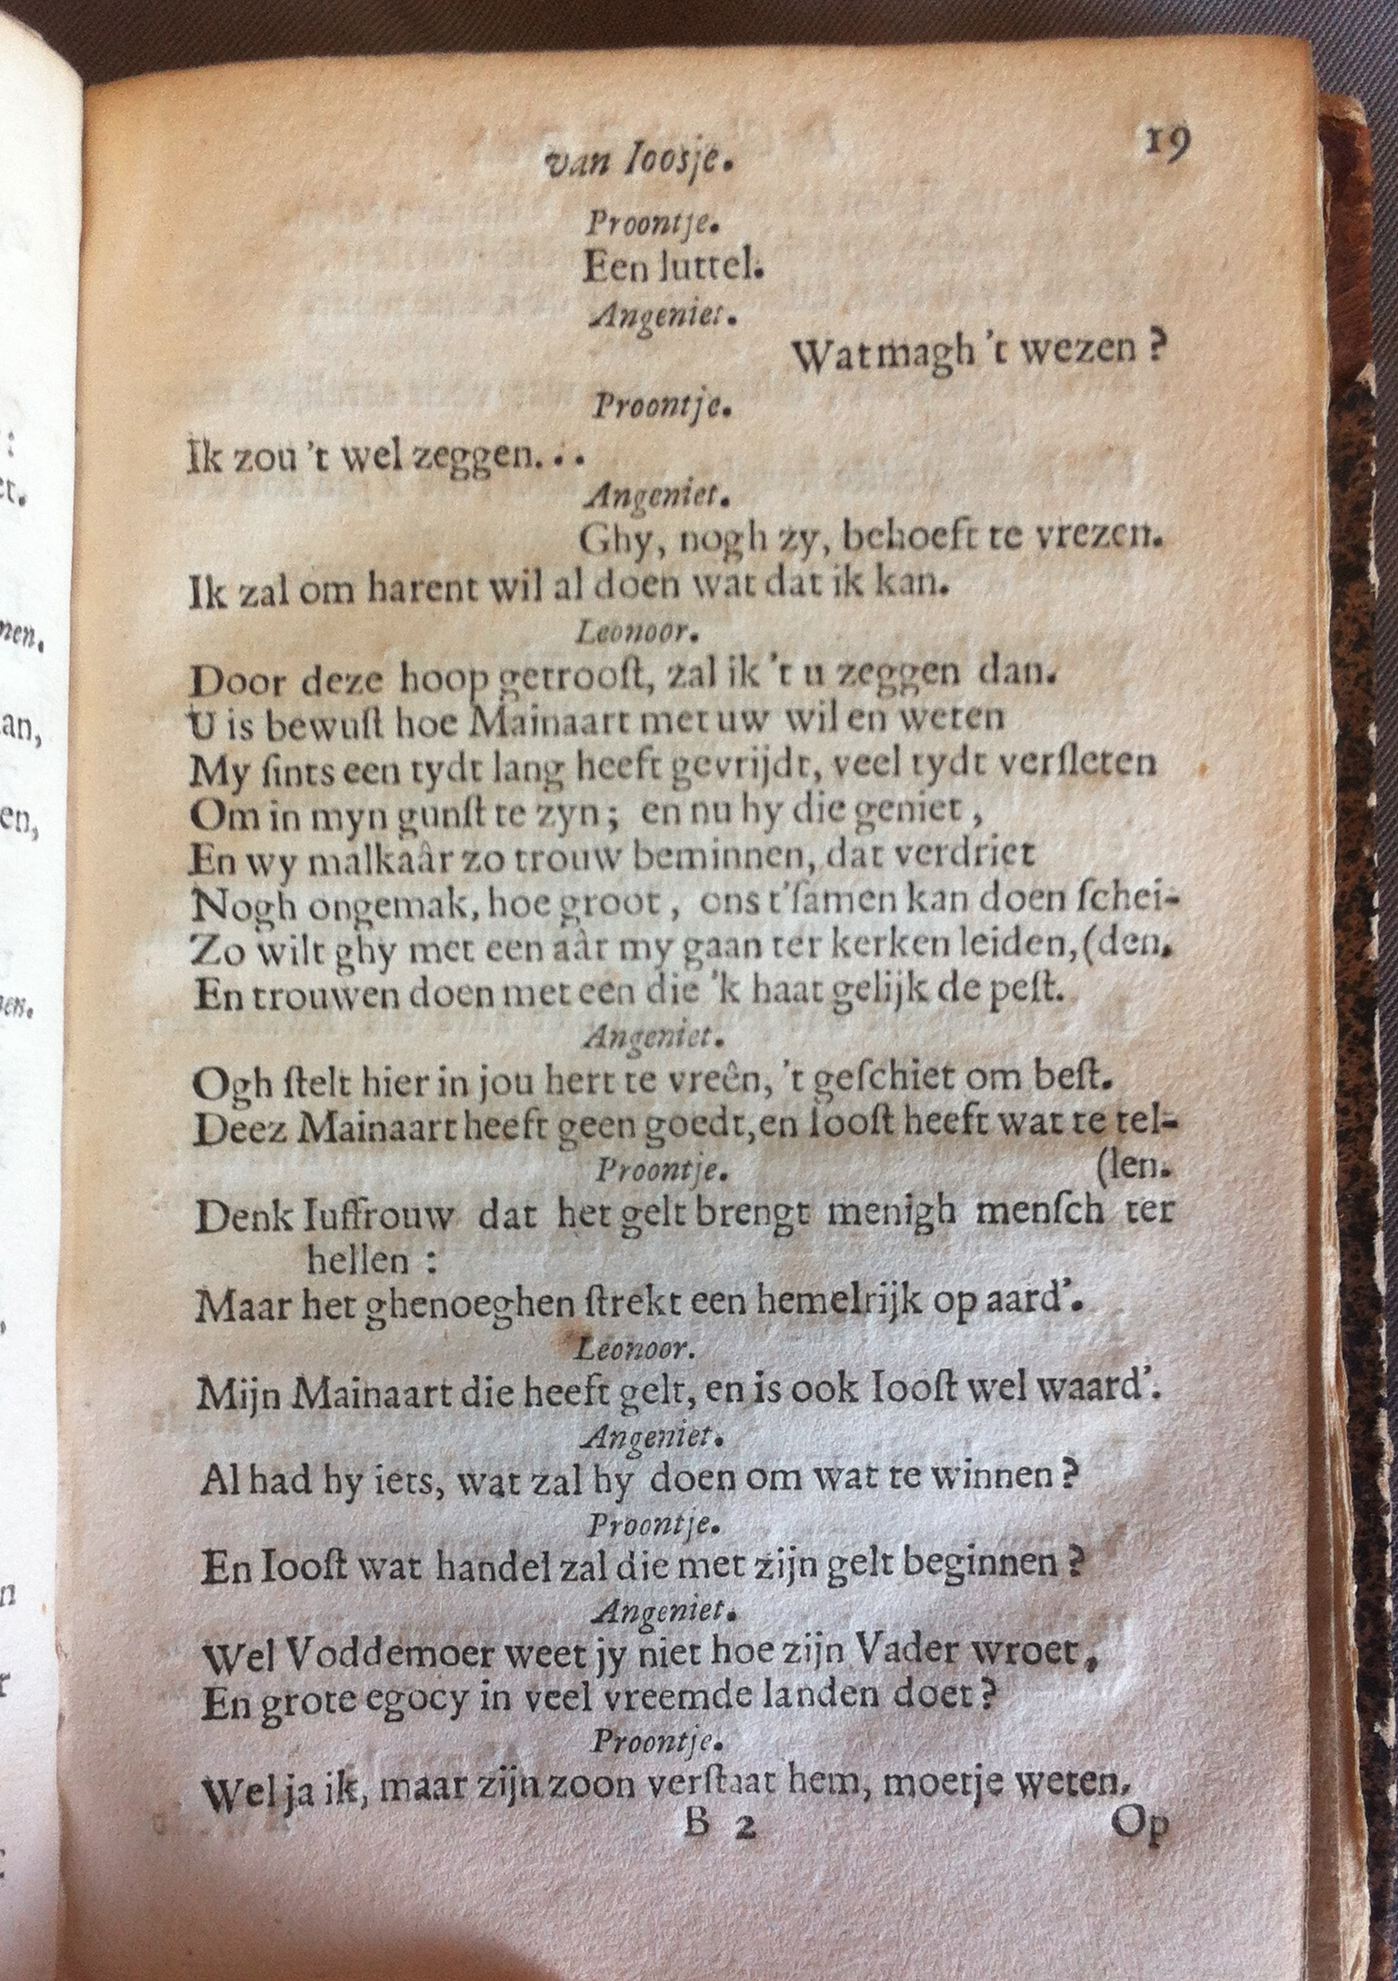 van Ioosje.
19
Proontje.
Een luttel.
Angeniet.
Wat magh 't wezen ?
Proontje.
Ik zou 't wel zeggen...
Angeniet.
Ghy, nogh zy, behoeft te vrezen.
Ik zal om harent wil al doen wat dat ik kan.
Leonoor.
Door deze hoop getrooſt, zal ik 't u zeggen dan.
U is bewuſt hoe Mainaart met uw wil en weten
My ſints een tydt lang heeft gevrijdt, veel tydt verſleten
Om in myn gunſt te zyn; en nu hy die geniet,
En wy malkaâr zo trouw beminnen, dat verdriet
Nogh ongemak, hoe groot, ons t'ſamen kan doen ſchei-
Zo wilt ghy met een aâr my gaan ter kerken leiden, (den.
En trouwen doen met een die 'k haat gelijk de peſt.
Angeniet.
Ogh ſtelt hier in jou hert te vreên, 't geſchiet om beſt.
Deez Mainaart heeft geen goedt, en Iooſt heeft wat te tel-
Proontje. (len.
Denk Iuffrouw dat het gelt brengt menigh menſch ter
hellen :
Maar het ghenoeghen ſtrekt een hemelrijk op aard'.
Leonoor.
Mijn Mainaart die heeft gelt, en is ook Iooſt wel waard'.
Angeniet.
Al had hy iets, wat zal hy doen om wat te winnen ?
Proontje.
En Iooſt wat handel zal die met zijn gelt beginnen ?
Angeniet.
Wel Voddemoer weet jy niet hoe zijn Vader wroet,
En grote egocy in veel vreemde landen doet ?
Proontje.
Wel ja ik, maar zijn zoon verſtaat hem, moetje weten.
B 2
Op
:
et.
nen.
an,
en,
nen.
,
n
r